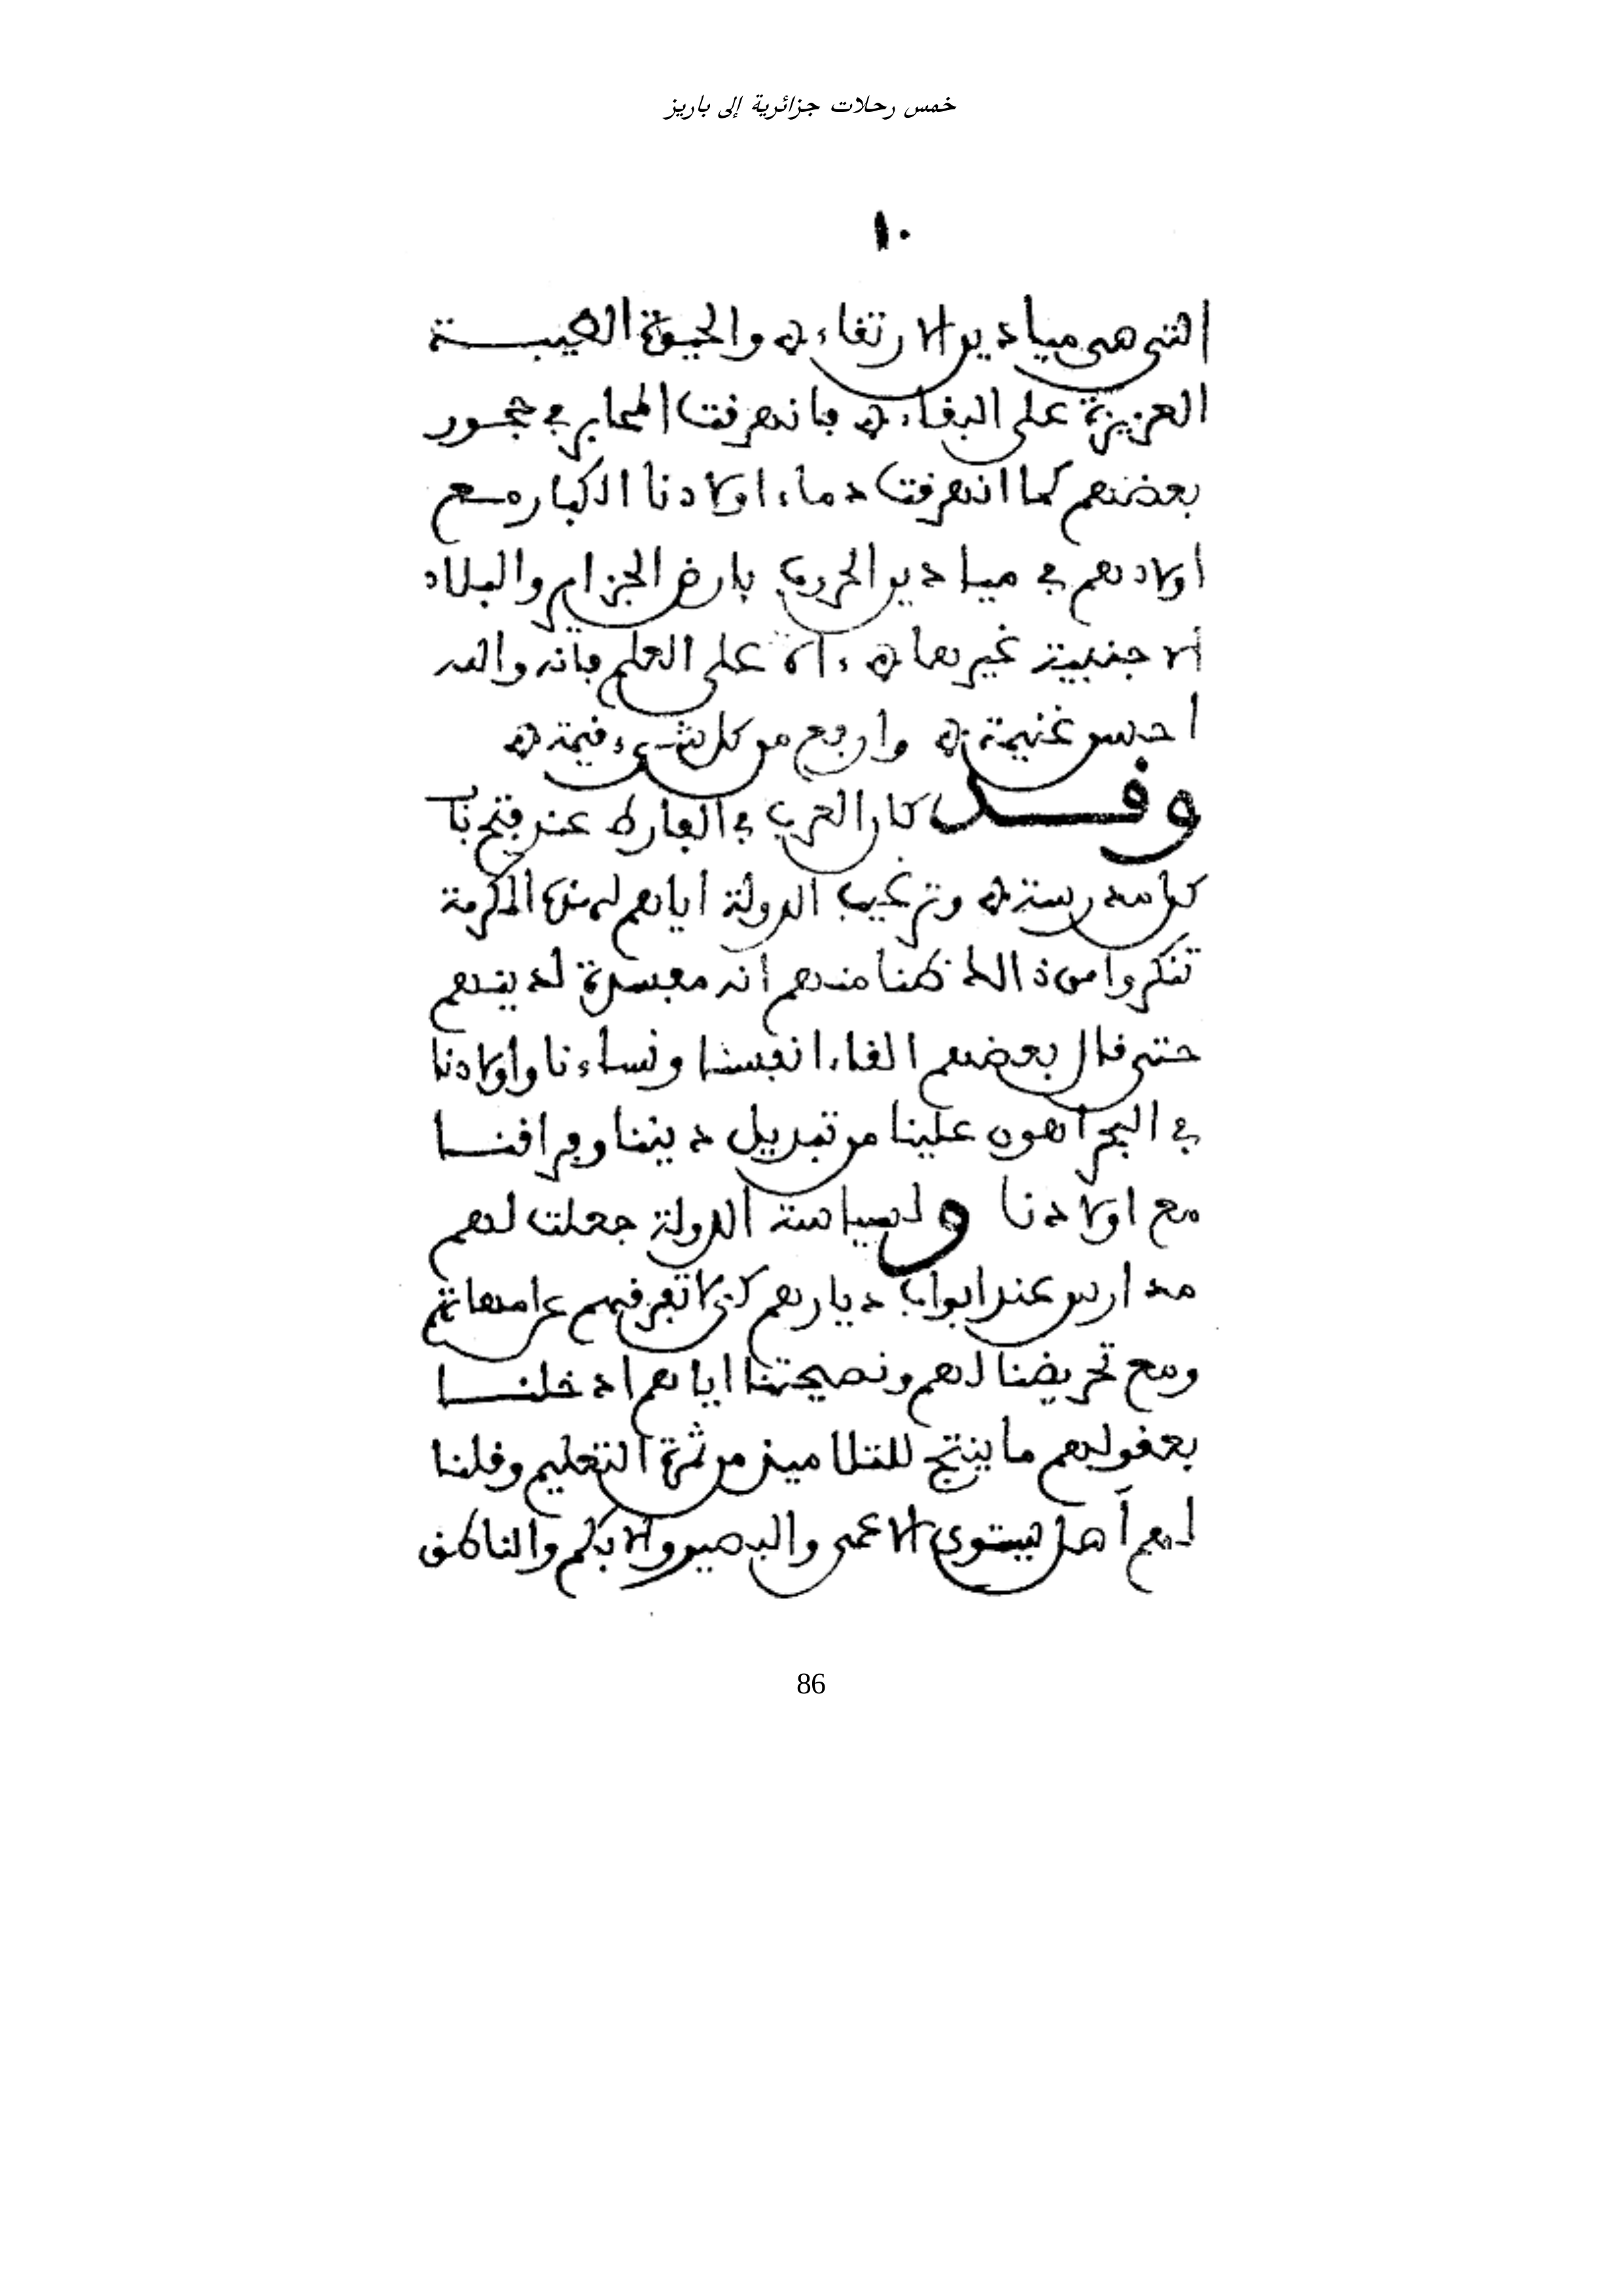 خمس رحلات جزائرية إلى باريز
١٠
التي هي ميادين الارتقاء ه والحيوة الطيبـــة
العزيزة على البقاء ه فانهرقت المحابر في حجـور
بعضهم كما انهرقت دماء اولادنا الكبار مـع
اولادهم في ميادين الحروب بارض الجزاير والبلاد
الاجنبية غيرها ه على العلم فانه والله
احسن غنيمة ه وارفع من كل شيء قيمة ه
وقــــد كان العرب في الفارط عند فتح باب
كل مدرسة ه وترغيب الدولة اياهم لهذه المكرمة
تنكروا من ذالك ظنا منهم انه مفسدة لدينهم
حتى قال بعضهم القاء انفسنا ونساءنا واولادنا
في البحر اهون علينا من تبديل ديننا وفراقنـــا
مع اولادنا ولسياسة الدولة جعلت لهم
مدارس عند ابواب ديارهم كي لا تفرقهم عن امهاتهم
ومع تحريضنا لهم ونصيحتنا اياهم ادخلنـــا
بعقولهم ما ينتج للتلاميذ من ثمرة التعليم وقلنا
لهم أهل يستوي الاعمى والبصير والابكم والناطق
86